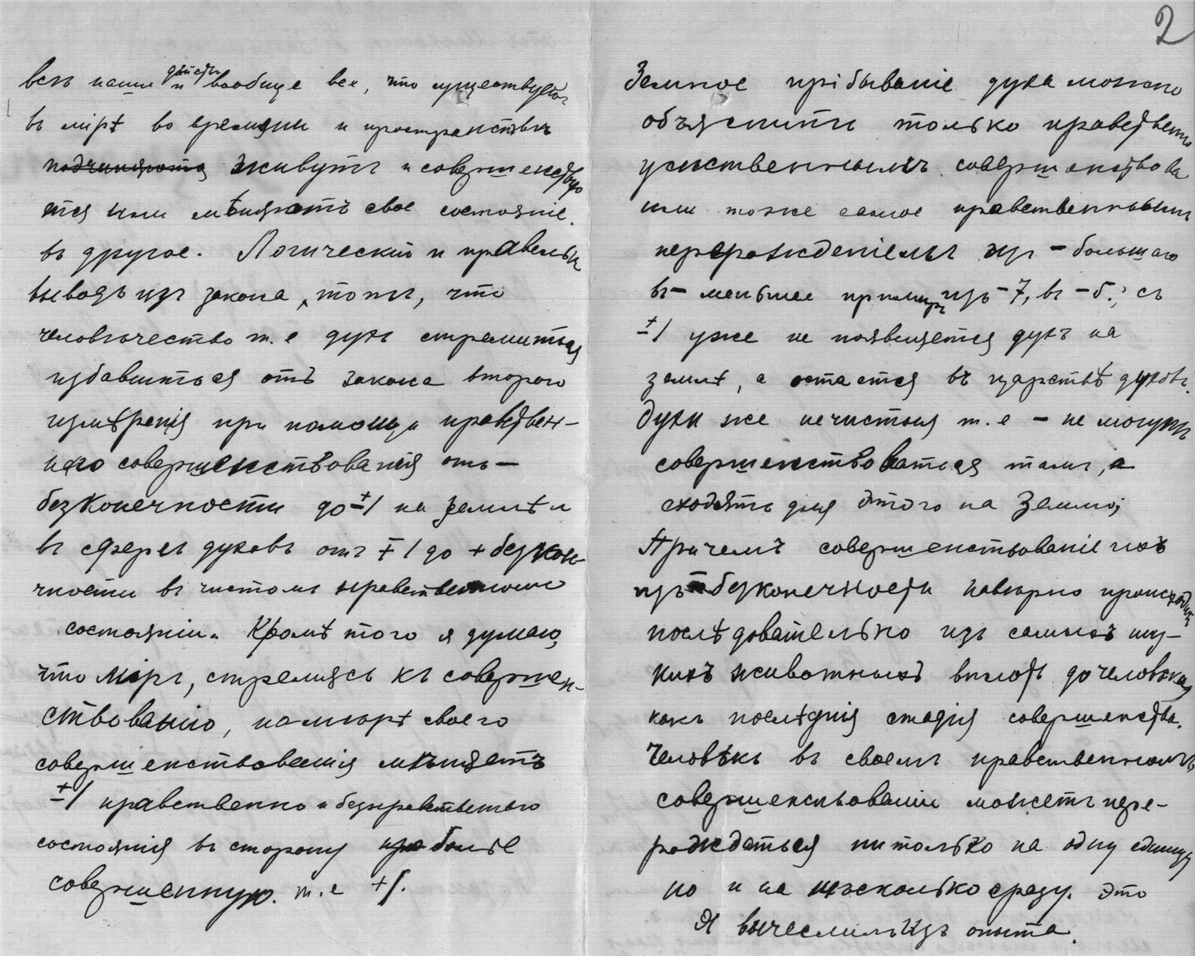 2
весь наши и вообще все, что существуетъ
въ мірѣ во времяни и пространствѣ
подчиняются живутъ и совершенству
ются или мѣняютъ свое состояніе
въ другое. Логическій и правельн
выводъ изъ закона, тотъ, что
человѣчество т.е духъ стремиться
избавиться отъ закона второго
измѣренія при помощи нравствен-
наго совершенствованія отъ —
безконечности до ±1 на землѣ и
въ сферѣ духовъ отъ ±1 до + безконе-
чности въ чистомъ нравственномъ
состояніи. Кромѣ того я думаю,
что міръ, стремясь къ совершен-
ствованію, по мѣрѣ своего
совершенствованія мѣняетъ
±1 нравственно и безнравственно
состоянія въ сторону более
совершенную. т.е +1.
Земное прібываніе духа можно
объяснить только нравственно
умственнымъ совершенствова
или тоже самое нравственнымъ
перерожденіемъ изъ – большаго
въ – меньшее примѣръ изъ – 7, въ – 6.; съ
±1 уже не появляется духъ на
землѣ, а остается въ царствѣ духовъ.
Духи же нечистыя т.е – не могутъ
совершенствоваться тамъ, а
сходятъ для этого на Землю;
Причемъ совершенствованіе ихъ
изъ – безконечности наверно происходитъ
послѣдовательно изъ самыхъ
животныхъ вплоть до человѣка
какъ послѣднія стадія совершенства.
Человѣкъ въ своемъ нравственномъ
совершенсвованіи можетъ пере-
рождаться нитолько на одну единицу
но и на нѣсколько сразу. Это
Я вычеслилъ изъ опыта.